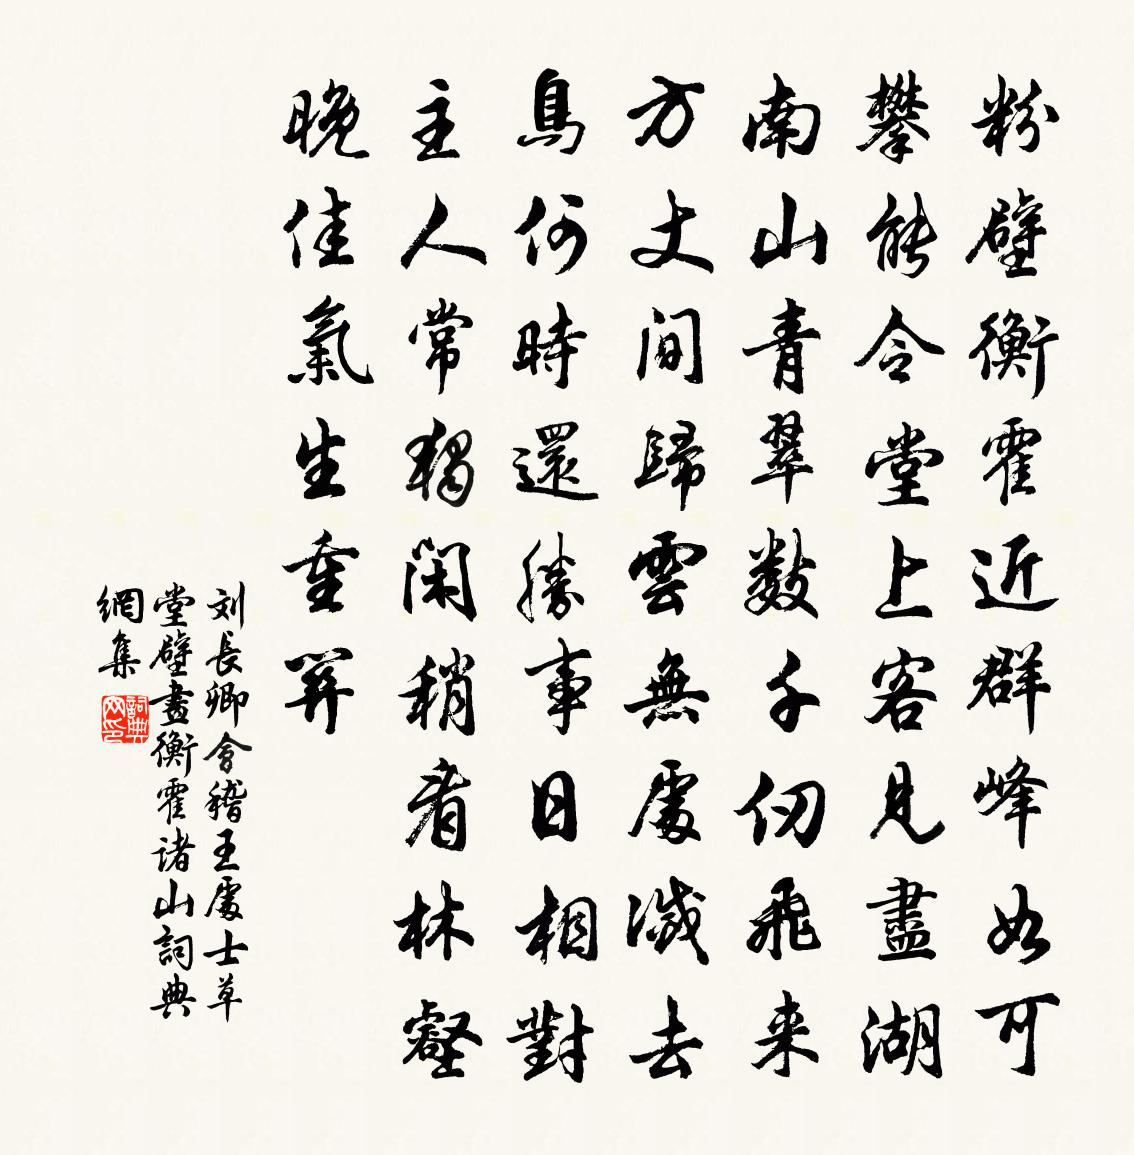 粉壁衡霍近群峰如可
攀能令堂上客見盡湖
南山青翠數千仞飛来
方丈間歸雲無處滅去
鳥何時還勝事日相對
主人常獨閑稍看林壑
晚佳氣生重關
刘長卿會稽王處士草
堂壁畫衡霍诸山詞典
網集
詞典网印